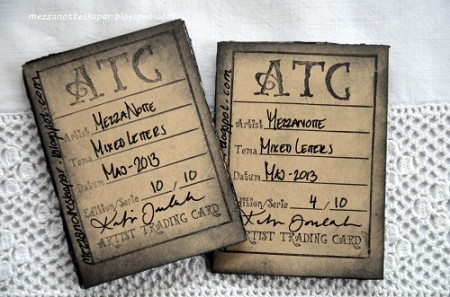 mezzanotteskapar.blogspot.com
ATC
Artist MEZZANOTTE
Tema MIXED LETTERS
Datum MAJ-2013
Edition/Serie 10 / 10
ARTIST TRADING CARD
mezzanotteskapar.blogspot.com
ATC
Artist MEZZANOTTE
Tema MIXED LETTERS
Datum MAJ-2013
Edition/Serie 4 / 10
ARTIST TRADING CARD
blogspot.com